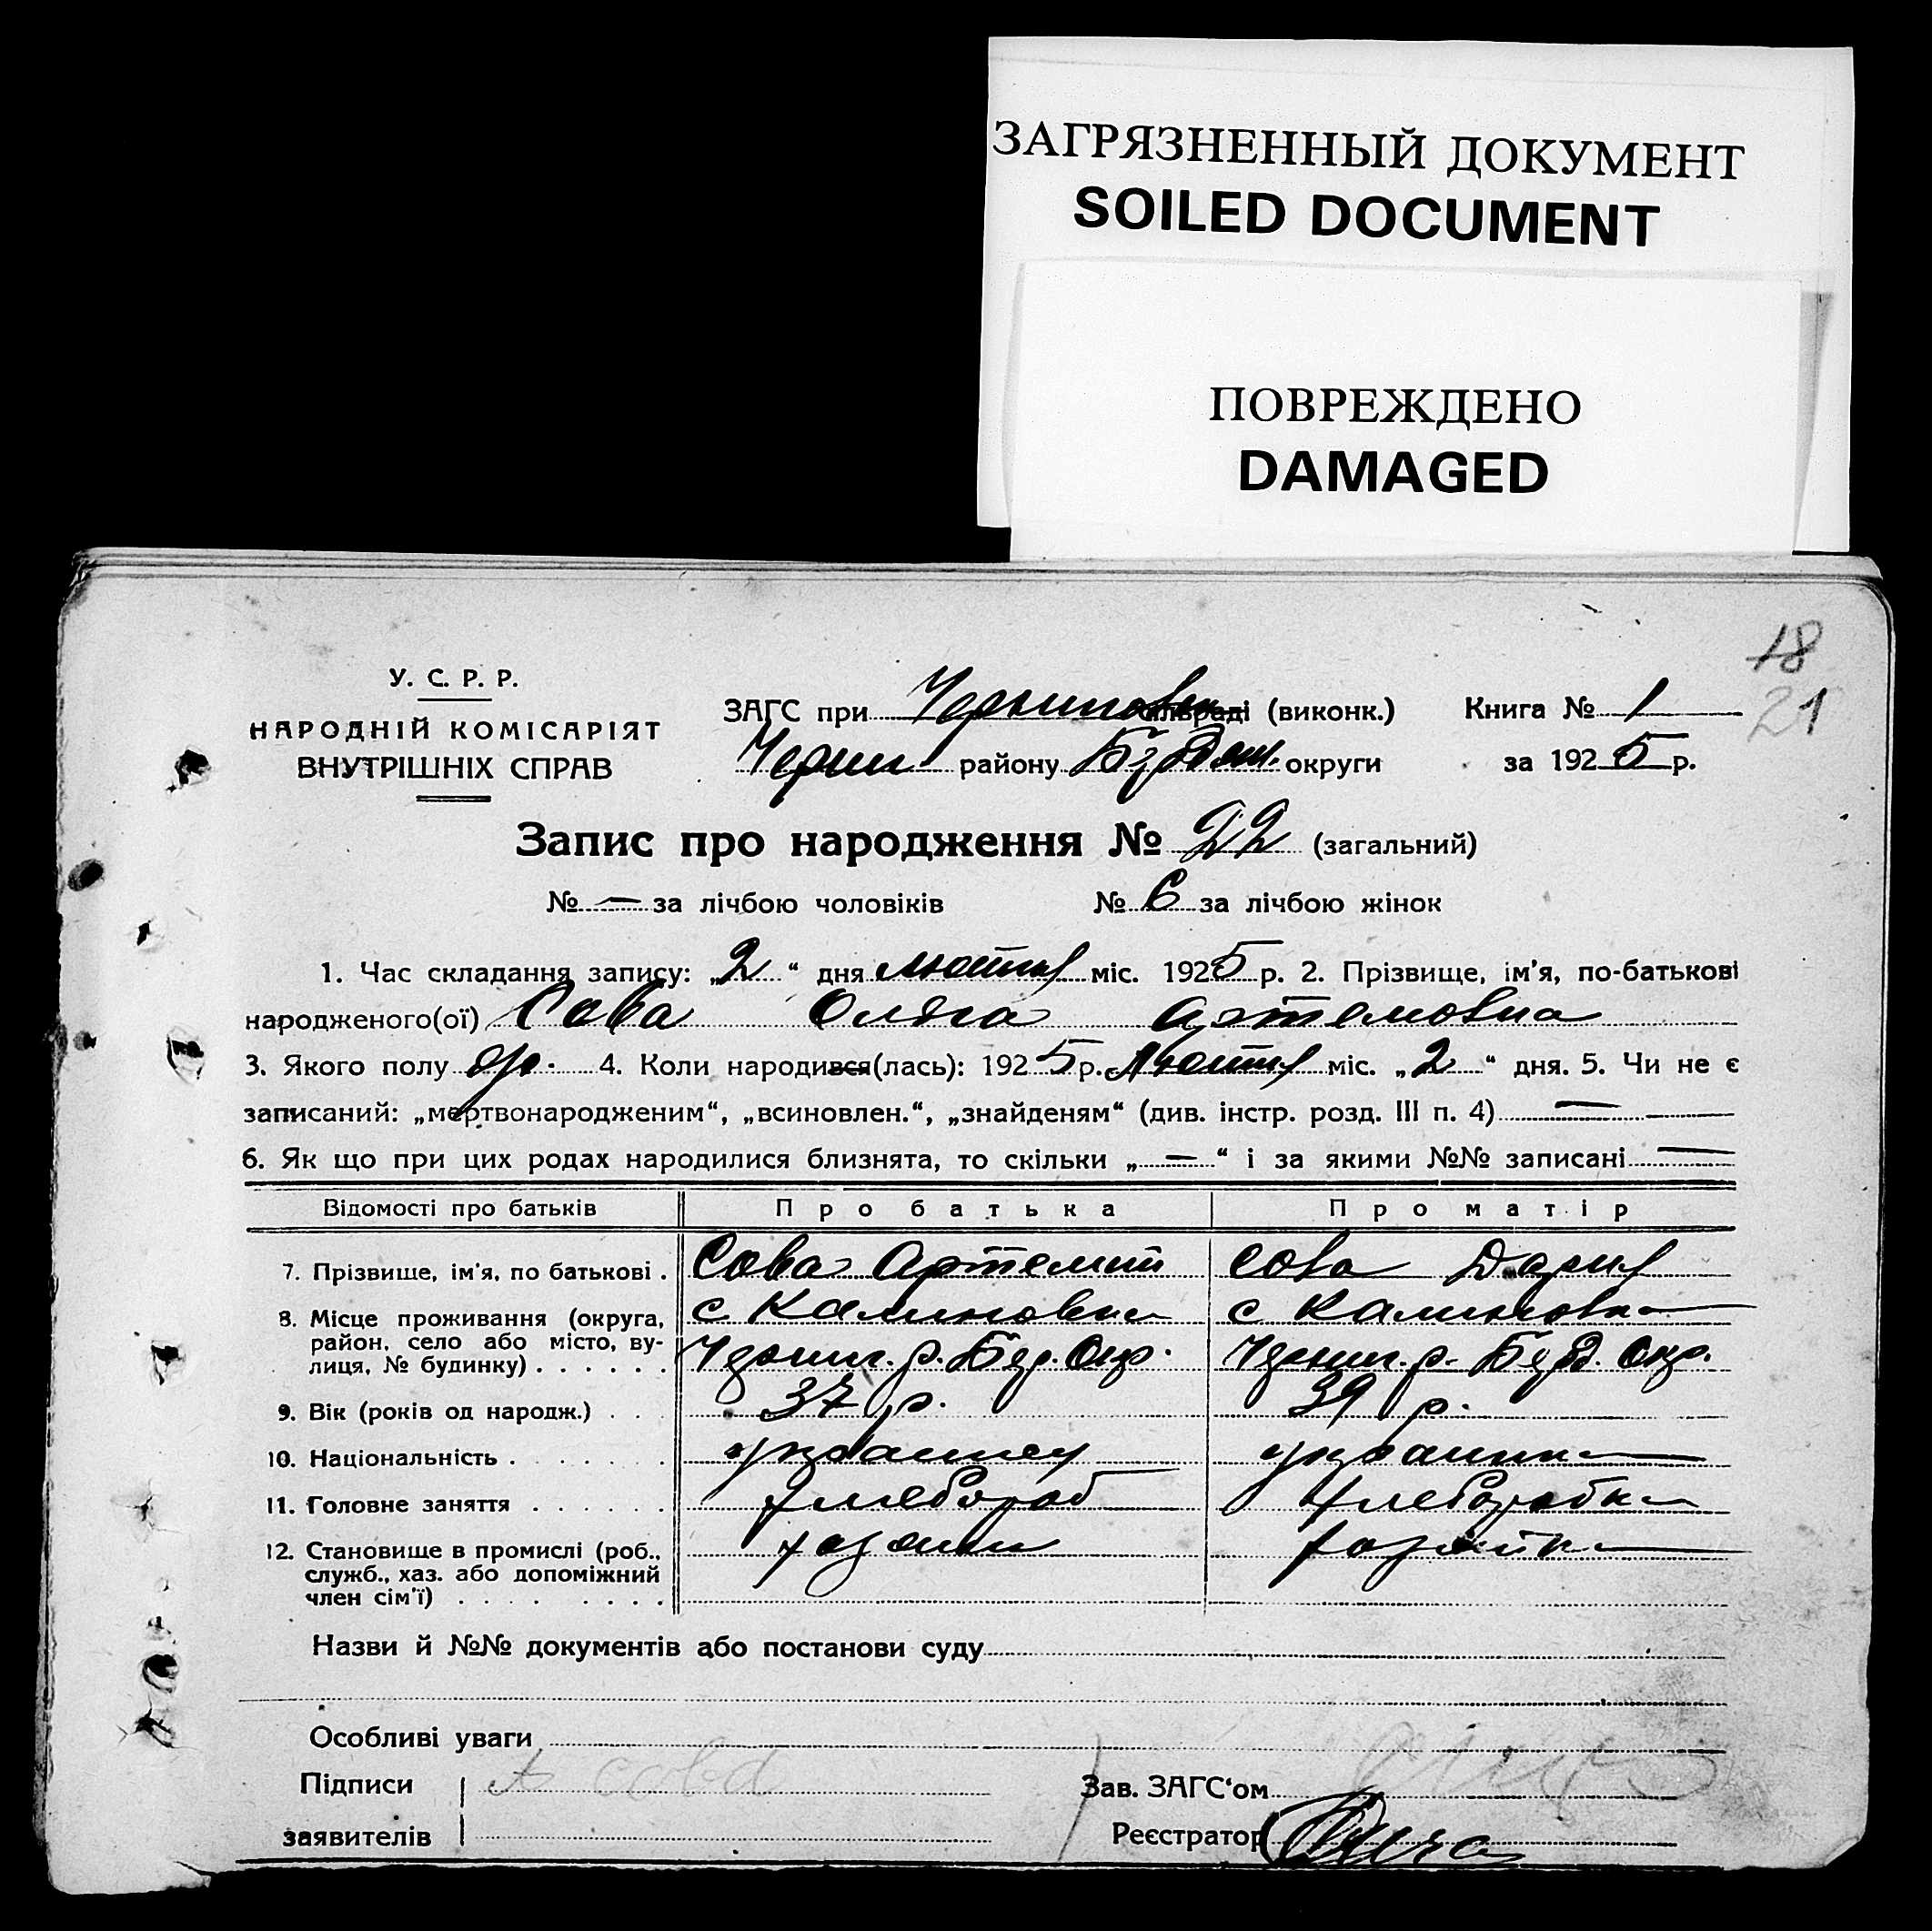 ЗАГРЯЗНЕННЫЙ ДОКУМЕНТ
SOILED DOCUMENT
ПОВРЕЖДЕНО
DAMAGED
18
21
У. С. Р. Р.
НАРОДНІЙ КОМІСАРІЯТ
ВНУТРІШНІХ СПРАВ
ЗАГС при сільраді (виконк.) Книга № 1
району округи за 1925 р.
Запис про народження № 22 (загальний)
№ — за лічбою чоловіків № 6 за лічбою жінок
1. Час складання запису: „2“ дня лютия міс. 1925 р. 2. Прізвище, ім'я, по-батькові
народженого(ої) Сова Ольга Артемовна
3. Якого полу 4. Коли народився(лась): 1925 р. лютия міс. „2“ дня. 5. Чи не є
записаний: „мертвонародженим“, „всиновлен.“, „знайденям“ (див. інстр. розд. III п. 4) —
6. Як що при цих родах народилися близнята, то скільки „—“ і за якими №№ записані —
Відомості про батьків Про батька Про матір
7. Прізвище, ім'я, по батькові . Сова Артемий Сова Дария
8. Місце проживання (округа, с Калиновка с Калиновка
район, село або місто, ву-
лиця, № будинку) . . . . . . р. Бер. Окр. р. Берд. Окр.
9. Вік (років од народж.) . . . 37 р. 39 р.
10. Національність . . . . . . . украинец украинка
11. Головне заняття . . . . . . хлебороб хлеборобка
12. Становище в промислі (роб., хозяин хозяйка
служб., хаз. або допоміжний
член сім'ї) . . . . . . . .
Назви й №№ документів або постанови суду
Особливі уваги
Підписи А сова Зав. ЗАГС'ом
заявителів Реєстратор